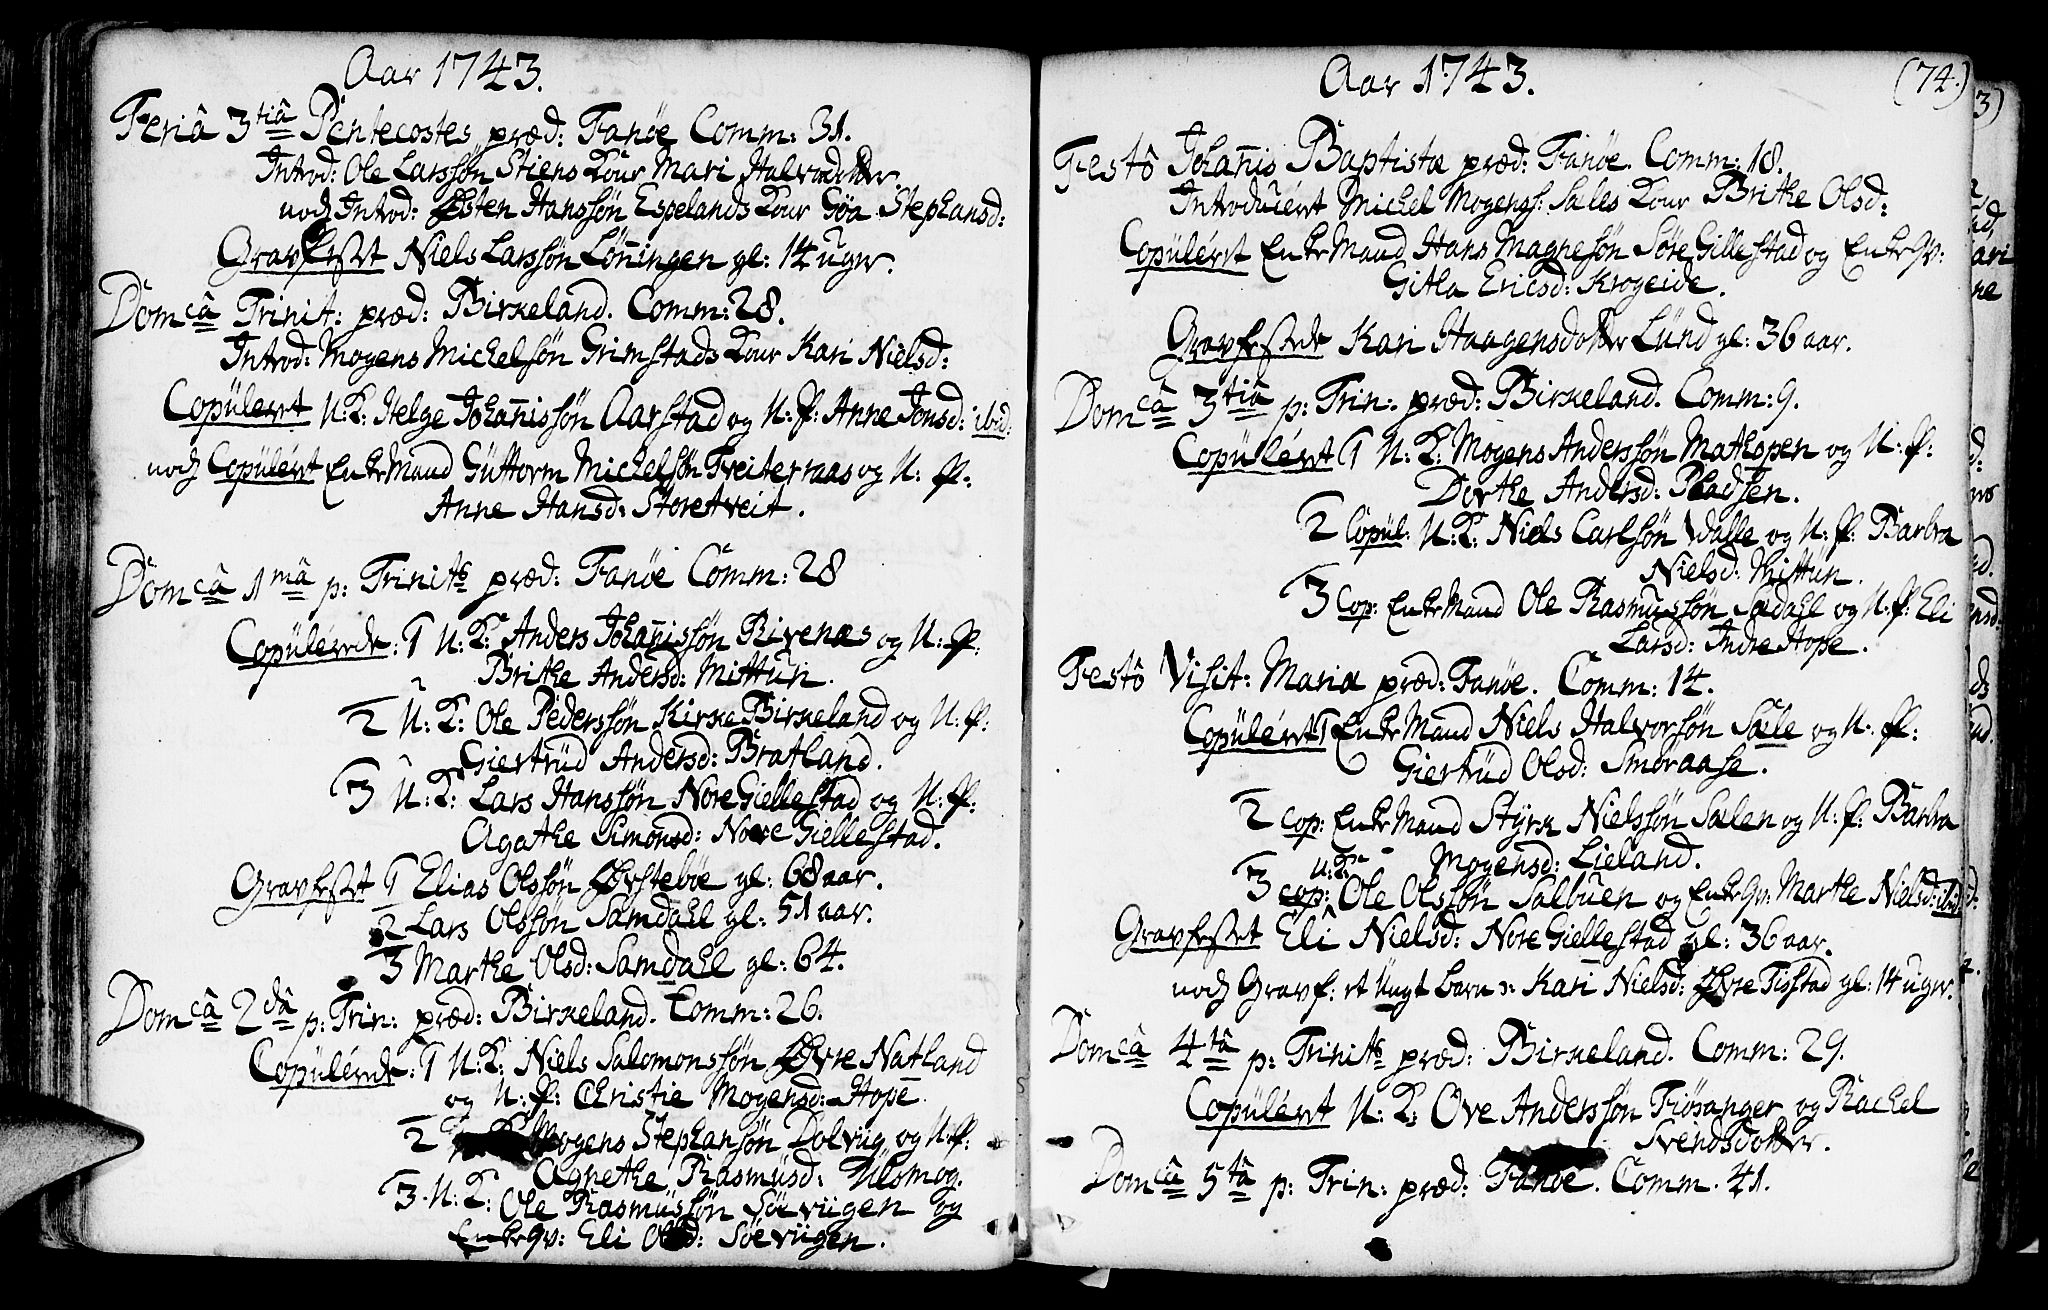 Aar 1743.
Feriâ 3tiâ Pentecostes præd: Fanöe Comm: 31.
Introd: Ole Larssøn Stiens Kone Mari Halvordotter.
noch Introd: Østen Hanssøn Espelands Kone Göa Stephansd:
Gravfestet Niels Larssøn Lönningen gl: 14 uger.
Domcâ Trinit: præd: Birkeland. Comm: 28.
Introd: Mogens Michelsøn Grimstads Kone Kari Nielsd:
Copuleret U: K: Helge Johannissøn Aarstad og U: P: Anne Jonsd: ibid:
noch Copuleret Enke Mand Guttorm Michelsøn Tveiterraas og U: P:
Anne Hansd: Storetveit.
Domcâ 1mâ p: Trinits præd: Fanöe Comm: 28
Copulerede: 1 U: K: Anders Johannissøn Rivenæs og U: P:
Brithe Andersd: Mittun.
2 U: K: Ole Pederssøn Kirke Birkeland og U: P:
Giertrud Andersd: Bratland.
3 U: K: Lars Hanssøn Nore Giellestad og U: P:
Agathe Simonsd: Nore Giellestad.
Gravfestet 1 Elias Olssøn Ørstebøe gl: 68 aar.
2 Lars Olssøn Samdahl gl: 51 aar.
3 Marthe Olsd: Samdahl gl: 64.
Domcâ 2dâ p: Trin: præd: Birkeland. Comm: 26.
Copulerede: 1 U: K: Niels Salomonssøn Øvre Natland
og U: P: Christie Mogensd: Hope
2 Mogens Stephansøn Dolviig og U: P:
Agnethe Rasmusd: Ulsmog.
3. U: K: Ole Rasmussøn Söeviigen og
Enkeqv: Eli Olsd: Söeviigen.
Aar 1743.
(74.)
Festô Johannis Baptistæ præd: Fanöe. Comm: 18.
Introduceret Michel Mogens: Sæles Kone Brithe Olsd:
Copuleret Enke Mand Hans Magnesøn Søre Gillestad og Enkeqv:
Gitla Ericsd: Krogeide.
Gravfestede Kari Haagensdotter Lund gl: 36 aar.
Domcâ 3tiâ p: Trin: præd: Birkeland. Comm: 9.
Copuléret 1 U: K: Mogens Anderssøn Mathopen og U: P:
Dorthe Andersd: Pladsen.
2 Copul: U: K: Niels Carlsøn Walle og U: P: Barbra
Nielsd: Mittun.
3 Cop: Enke Mand Ole Rasmussøn Sædahl og U: P: Eli
Larsd: Indre Hope.
Festô Visit: Mariæ præd: Fanöe. Comm: 14.
Copuléret 1 Enke Mand Niels Halvorsøn Sæle og U: P:
Giertrud Olsd: Smøraase.
2 cop: Enke Mand Styrk Nielssøn Sælen og U: P: Barbra
Mogensd: Lieland.
3 cop: U: K: Ole Olssøn Sælbuen og Enkeqv: Marthe Nielsd: ibid
Gravfestet Eli Nielsd: Nore Giellestad gl: 36 aar.
noch Gravf: et Ungt barn n: Kari Nielsd: Øvre Tistad gl: 14 uger.
Domcâ 4tâ p: Trinits præd: Birkeland. Comm: 29.
Copuléret U: K: Ove Anderssøn Fiøsanger og Rachel
Svendsdotter.
Domcâ 5tâ p: Trin: præd: Fanöe. Comm. 41.